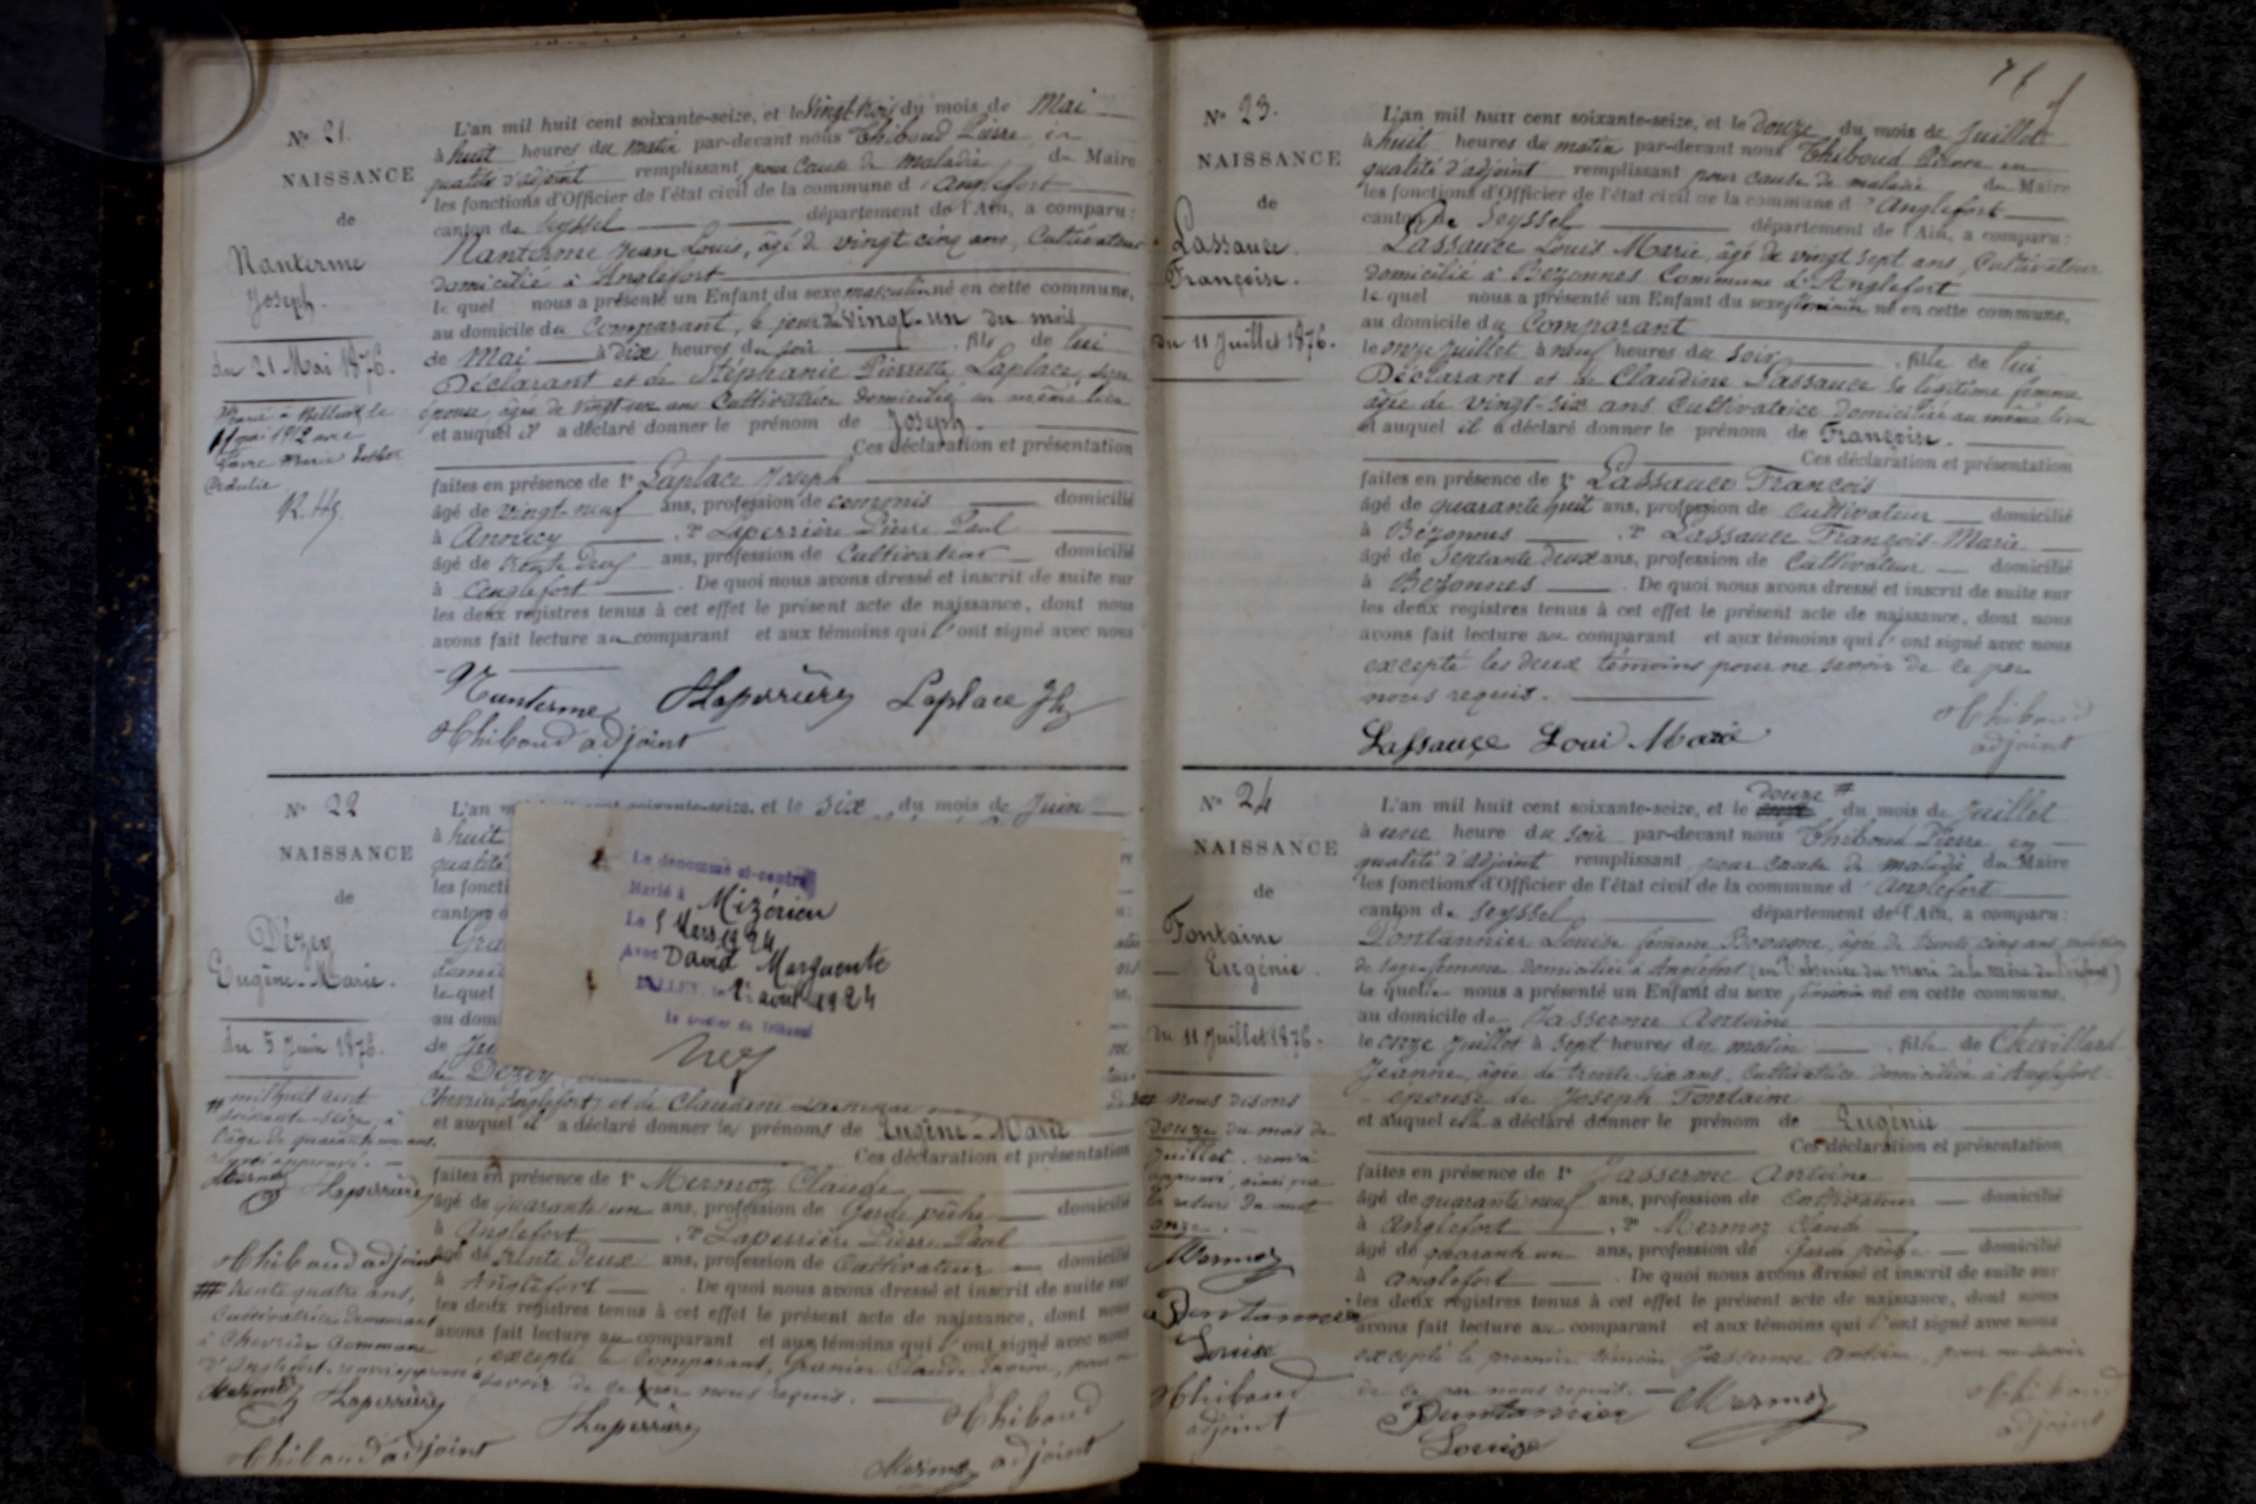 N° 21.
NAISSANCE
de
Nanterme
Joseph.
du 21 Mai 1876.
Marié à Belley le
mai 1912 avec
Favre Marie
L'an mil huit cent soixante-seize, et le vingt trois du mois de Mai
à huit heures du matin par-devant nous Thiboud Pierre en
qualité d'adjoint remplissant pour cause de maladie du Maire
les fonctions d'Officier de l'état civil de la commune d'Anglefort
canton de Seyssel département de l'Ain, a comparu:
Nanterme Jean Louis, âgé de vingt cinq ans, Cultivateur
domicilié à Anglefort
le quel nous a présenté un Enfant du sexe masculin né en cette commune,
au domicile du Comparant, le jour du vingt-un du mois
de Mai à dix heures du soir fils de lui
Déclarant et de Stéphanie Pierrette Laplace, son
épouse, âgée de vingt ans Cultivatrice domiciliée au même lieu
et auquel il a déclaré donner le prénom de Joseph.
Ces déclaration et présentation
faites en présence de 1° Laplace Joseph
âgé de vingt-neuf ans, profession de commis domicilié
à Annecy 2° Laperrière Pierre Paul
âgé de trente deux ans, profession de Cultivateur domicilié
à Anglefort. De quoi nous avons dressé et inscrit de suite sur
les deux registres tenus à cet effet le présent acte de naissance, dont nous
avons fait lecture au comparant et aux témoins qui l'ont signé avec nous
Nanterme Laperrière Laplace Jh
Thiboud adjoint
N° 22
NAISSANCE
de
Dézey
Eugène-Marie.
du 5 Juin 1876.
# mil huit cent
soixante-seize, à
l'âge de quarante un ans.
Mermoz
Laperrière
Thiboud adjoint
## trente quatre ans,
Cultivatrice demeurant
à Chevrier Commune
d'Anglefort renvoi approuvé
Mermoz Laperrière
Thiboud adjoint
L'an soixante-seize, et le six du mois de Juin
à huit
qualité
les foncti
canton d
le quel
au dom
de Ju
de Dézey
Le dénommé ci-contre
Marié à Mizérieu
Le 5 Mars 1924
Avec David Marguerite
BELLEY, le 1er avril 1924
Le Greffier du Tribunal
Chevrier Anglefort et de Claudine
et auquel il a déclaré donner les prénoms de Eugène-Marie
Ces déclaration et présentation
faites en présence de 1° Mermoz Claude
âgé de quarante un ans, profession de Garde pêche domicilié
à Anglefort 2° Laperrière Pierre Paul
âgé de trente deux ans, profession de Cultivateur domicilié
à Anglefort. De quoi nous avons dressé et inscrit de suite sur
les deux registres tenus à cet effet le présent acte de naissance, dont nous
avons fait lecture au comparant et aux témoins qui l'ont signé avec nous
excepté le Comparant, Grenier Claude pour ne
savoir de ce par nous requis.
Laperrière Thiboud
Mermoz adjoint
N° 23.
NAISSANCE
de
Lassauce
Françoise.
du 11 Juillet 1876.
L'an mil huit cent soixante-seize, et le douze du mois de Juillet
à huit heures du matin par-devant nous Thiboud Pierre en
qualité d'adjoint remplissant pour cause de maladie du Maire
les fonctions d'Officier de l'état civil de la commune d'Anglefort
canton de Seyssel département de l'Ain, a comparu:
Lassauce Louis Marie, âgé de vingt sept ans, Cultivateur
domicilié à Bezonnes Commune d'Anglefort
le quel nous a présenté un Enfant du sexe féminin né en cette commune,
au domicile du Comparant
le onze Juillet à neuf heures du soir, fille de lui
Déclarant et de Claudine Lassauce sa légitime femme
âgée de vingt-six ans Cultivatrice domiciliée au même lieu
et auquel il a déclaré donner le prénom de Françoise.
Ces déclaration et présentation
faites en présence de 1° Lassauce François
âgé de quarante huit ans, profession de cultivateur domicilié
à Bezonnes 2° Lassauce François-Marie
âgé de Septante deux ans, profession de Cultivateur domicilié
à Bezonnes. De quoi nous avons dressé et inscrit de suite sur
les deux registres tenus à cet effet le présent acte de naissance, dont nous
avons fait lecture au comparant et aux témoins qui l'ont signé avec nous
excepté les deux témoins pour ne savoir de ce par
nous requis.
Lassauce Loui Marie
Thiboud
adjoint
N° 24
NAISSANCE
de
Fontaine
Eugénie.
du 11 Juillet 1876.
# nous disons
douze du mois de
Juillet. renvoi
approuvé, ainsi que
la rature du mot
onze.
Mermoz
Dontannier
Louise
Thiboud
adjoint
L'an mil huit cent soixante-seize, et le douze # du mois de Juillet
à une heure du soir par-devant nous Thiboud Pierre en
qualité d'adjoint remplissant pour cause de maladie du Maire
les fonctions d'Officier de l'état civil de la commune d'Anglefort
canton de Seyssel département de l'Ain, a comparu:
Dontannier Louise femme âgée de trente cinq ans, profession
de sage-femme domiciliée à Anglefort (en l'absence du mari de la mère de l'enfant)
la quelle nous a présenté un Enfant du sexe féminin né en cette commune,
au domicile de Jasserme Antoine
le onze Juillet à sept heures du matin, fille de Chevillard
Jeanne, âgée de trente-six ans, Cultivatrice domiciliée à Anglefort
épouse de Joseph Fontaine
et auquel elle a déclaré donner le prénom de Eugénie
Ces déclaration et présentation
faites en présence de 1° Jasserme Antoine
âgé de quarante neuf ans, profession de Cultivateur domicilié
à Anglefort, 2° Mermoz Claude
âgé de quarante un ans, profession de Garde pêche domicilié
à Anglefort. De quoi nous avons dressé et inscrit de suite sur
les deux registres tenus à cet effet le présent acte de naissance, dont nous
avons fait lecture au comparant et aux témoins qui l'ont signé avec nous
excepté le premier témoin Jasserme Antoine, pour ne savoir
de ce par nous requis.
Dontannier Mermoz
Louise
Thiboud
adjoint